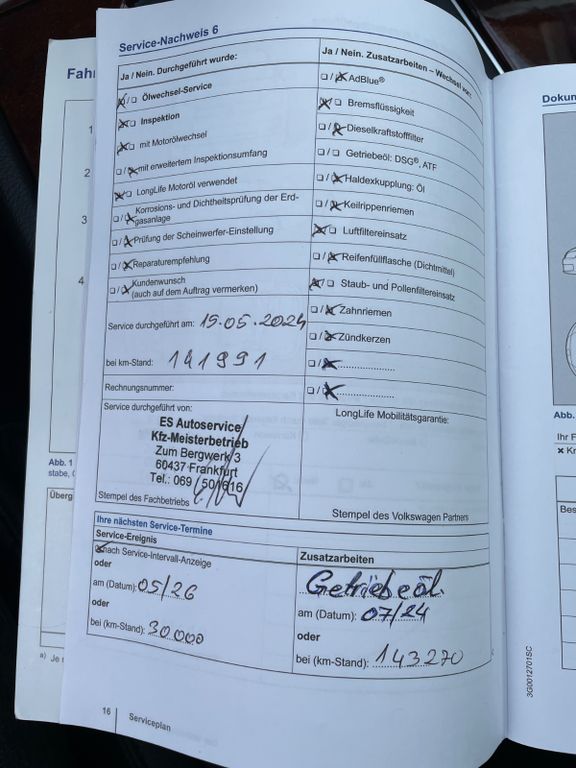 Service-Nachweis 6
Fahr
Ja / Nein. Durchgeführt wurde:
Ölwechsel-Service
Inspektion
mit Motorölwechsel
mit erweitertem Inspektionsumfang
LongLife Motoröl verwendet
Korrosions- und Dichtheitsprüfung der Erd-
gasanlage
Prüfung der Scheinwerfer-Einstellung
Reparaturempfehlung
Kundenwunsch
(auch auf dem Auftrag vermerken)
Service durchgeführt am: 15.05.2024
bei km-Stand: 141991
Rechnungsnummer:
Service durchgeführt von:
ES Autoservice
Kfz-Meisterbetrieb
Zum Bergwerk 3
60437 Frankfurt
Tel.: 069 / 501616
Stempel des Fachbetriebs
Ja / Nein. Zusatzarbeiten – Wechsel von:
AdBlue®
Bremsflüssigkeit
Dieselkraftstofffilter
Getriebeöl: DSG®, ATF
Haldexkupplung: Öl
Keilrippenriemen
Luftfiltereinsatz
Reifenfüllflasche (Dichtmittel)
Staub- und Pollenfiltereinsatz
Zahnriemen
Zündkerzen
LongLife Mobilitätsgarantie:
Stempel des Volkswagen Partners
Ihre nächsten Service-Termine
Service-Ereignis
nach Service-Intervall-Anzeige
oder
am (Datum): 05/26
oder
bei (km-Stand): 30.000
Zusatzarbeiten
Getriebeöl
am (Datum): 07/24
oder
bei (km-Stand): 143270
16 Serviceplan
1
2
3
4
Abb. 1
stabe, 
Überg
a) Je
Dokum
Abb.
Ihr F
× Kr
Bes
3G0012701SC